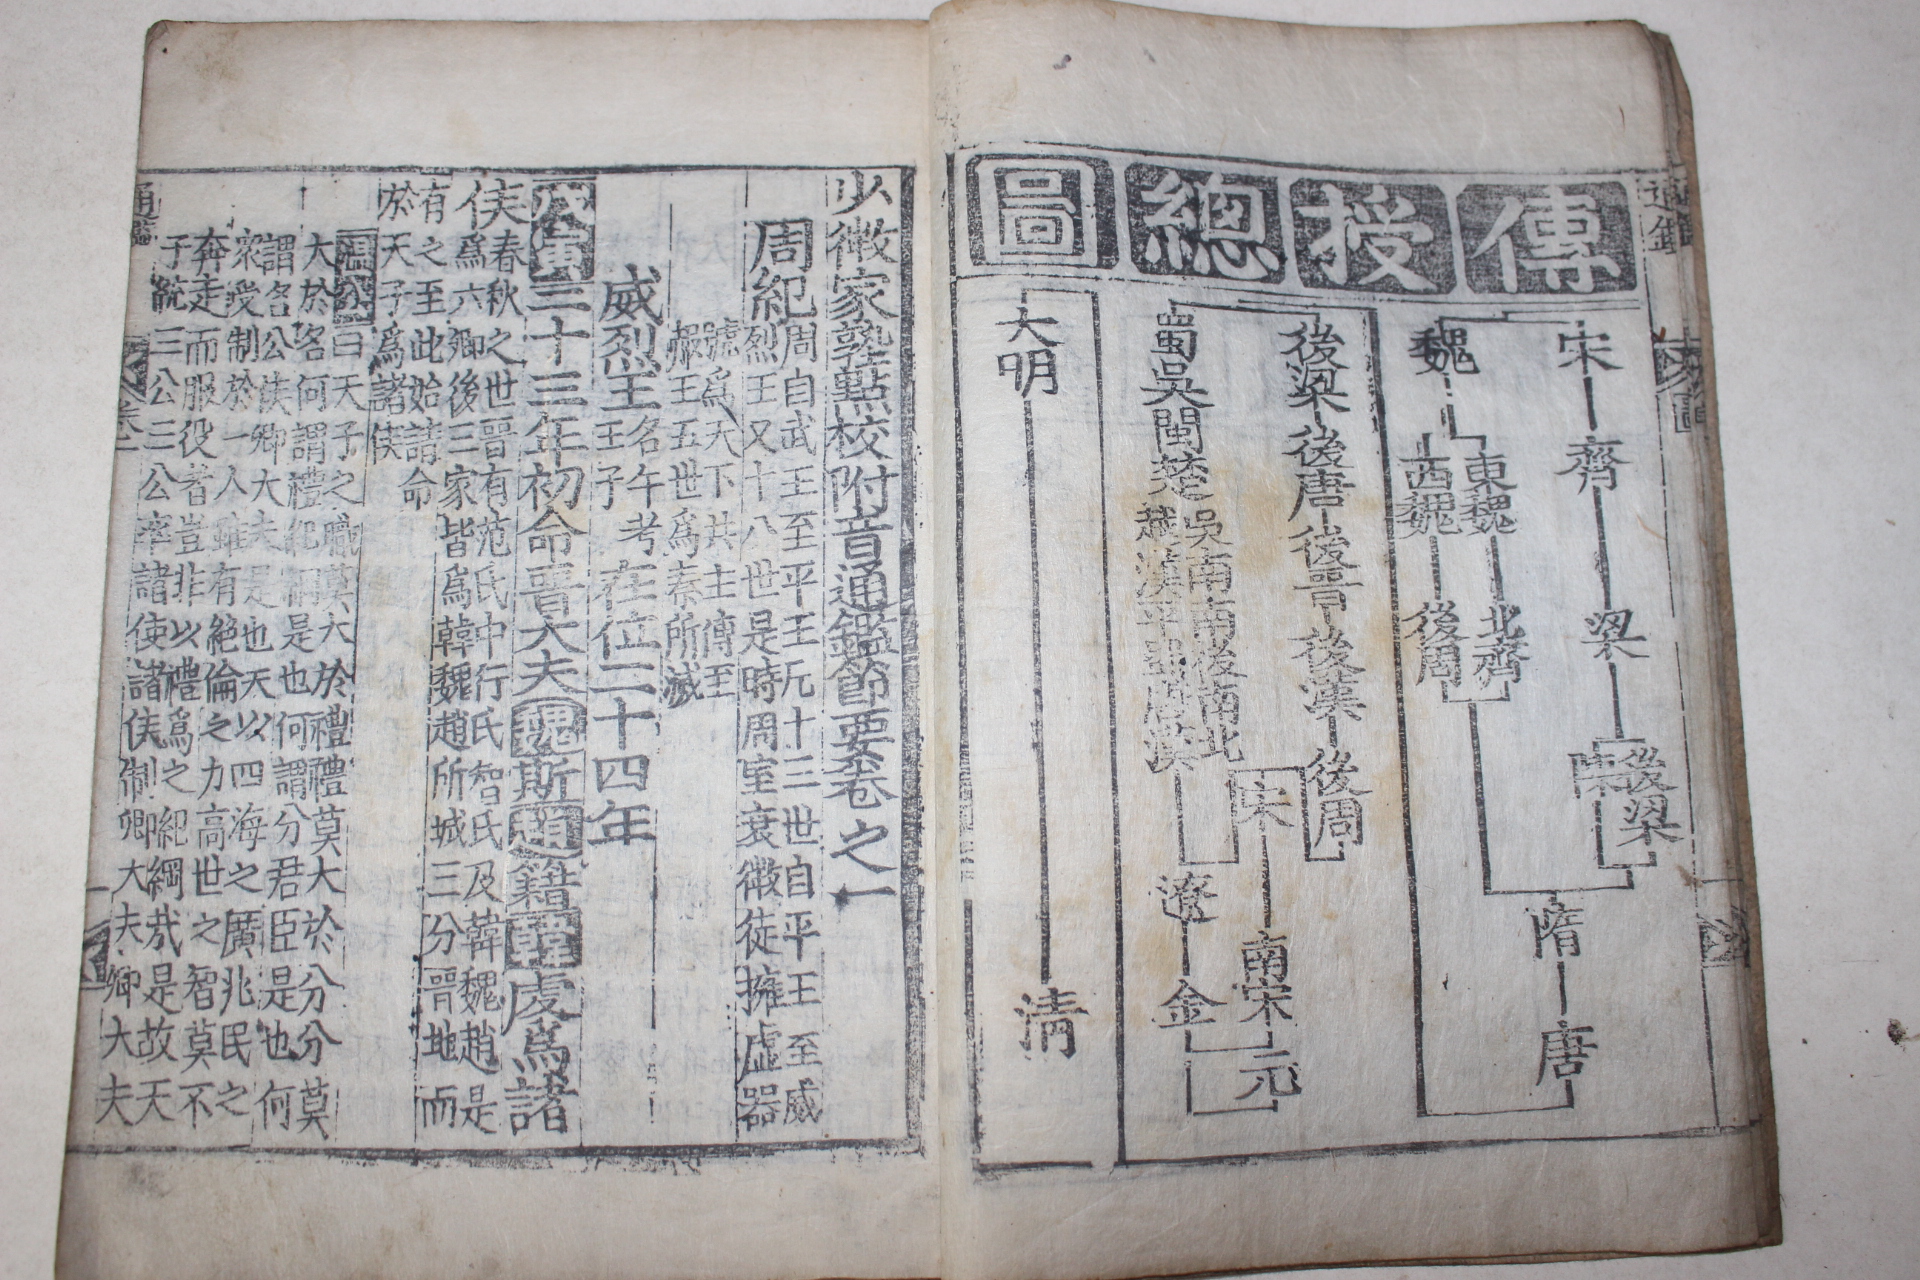 傳授總圖
宋 齊 梁 後梁
陳
隋 唐
魏 東魏 北齊
西魏 後周
後梁 後唐 後晉 後漢 後周
宋 南宋 元
蜀 吳 閩 楚 吳 南 南 後 南 北
越 漢 平 蜀 唐 漢
遼 金
大明 清
少微家塾點校附音通鑑節要卷之一
周紀
周自武王至平王凡十三世自平王至威
烈王又十八世是時周室衰微徒擁虛器
號爲天下共主傳至
赧王五世爲秦所滅
威烈王名午考
王子在位二十四年
戊寅二十三年初命晉大夫魏斯趙籍韓虔爲諸
侯
春秋之世晉有范氏中行氏智氏及韓魏趙是
爲六卿後三家皆爲韓魏趙所城三分晉地而
有之至此始請命
於天子爲諸侯
溫公曰天子之職莫大於禮禮莫大於分分莫
大於名何謂禮紀綱是也何謂分君臣是也何
謂名公侯卿大夫是也天以四海之廣兆民之
衆受制於一人雖有絶倫之力高世之智莫不
奔走而服役者豈非以禮爲之紀綱哉是故天
子統三公三公率諸侯諸侯制卿大夫卿大夫